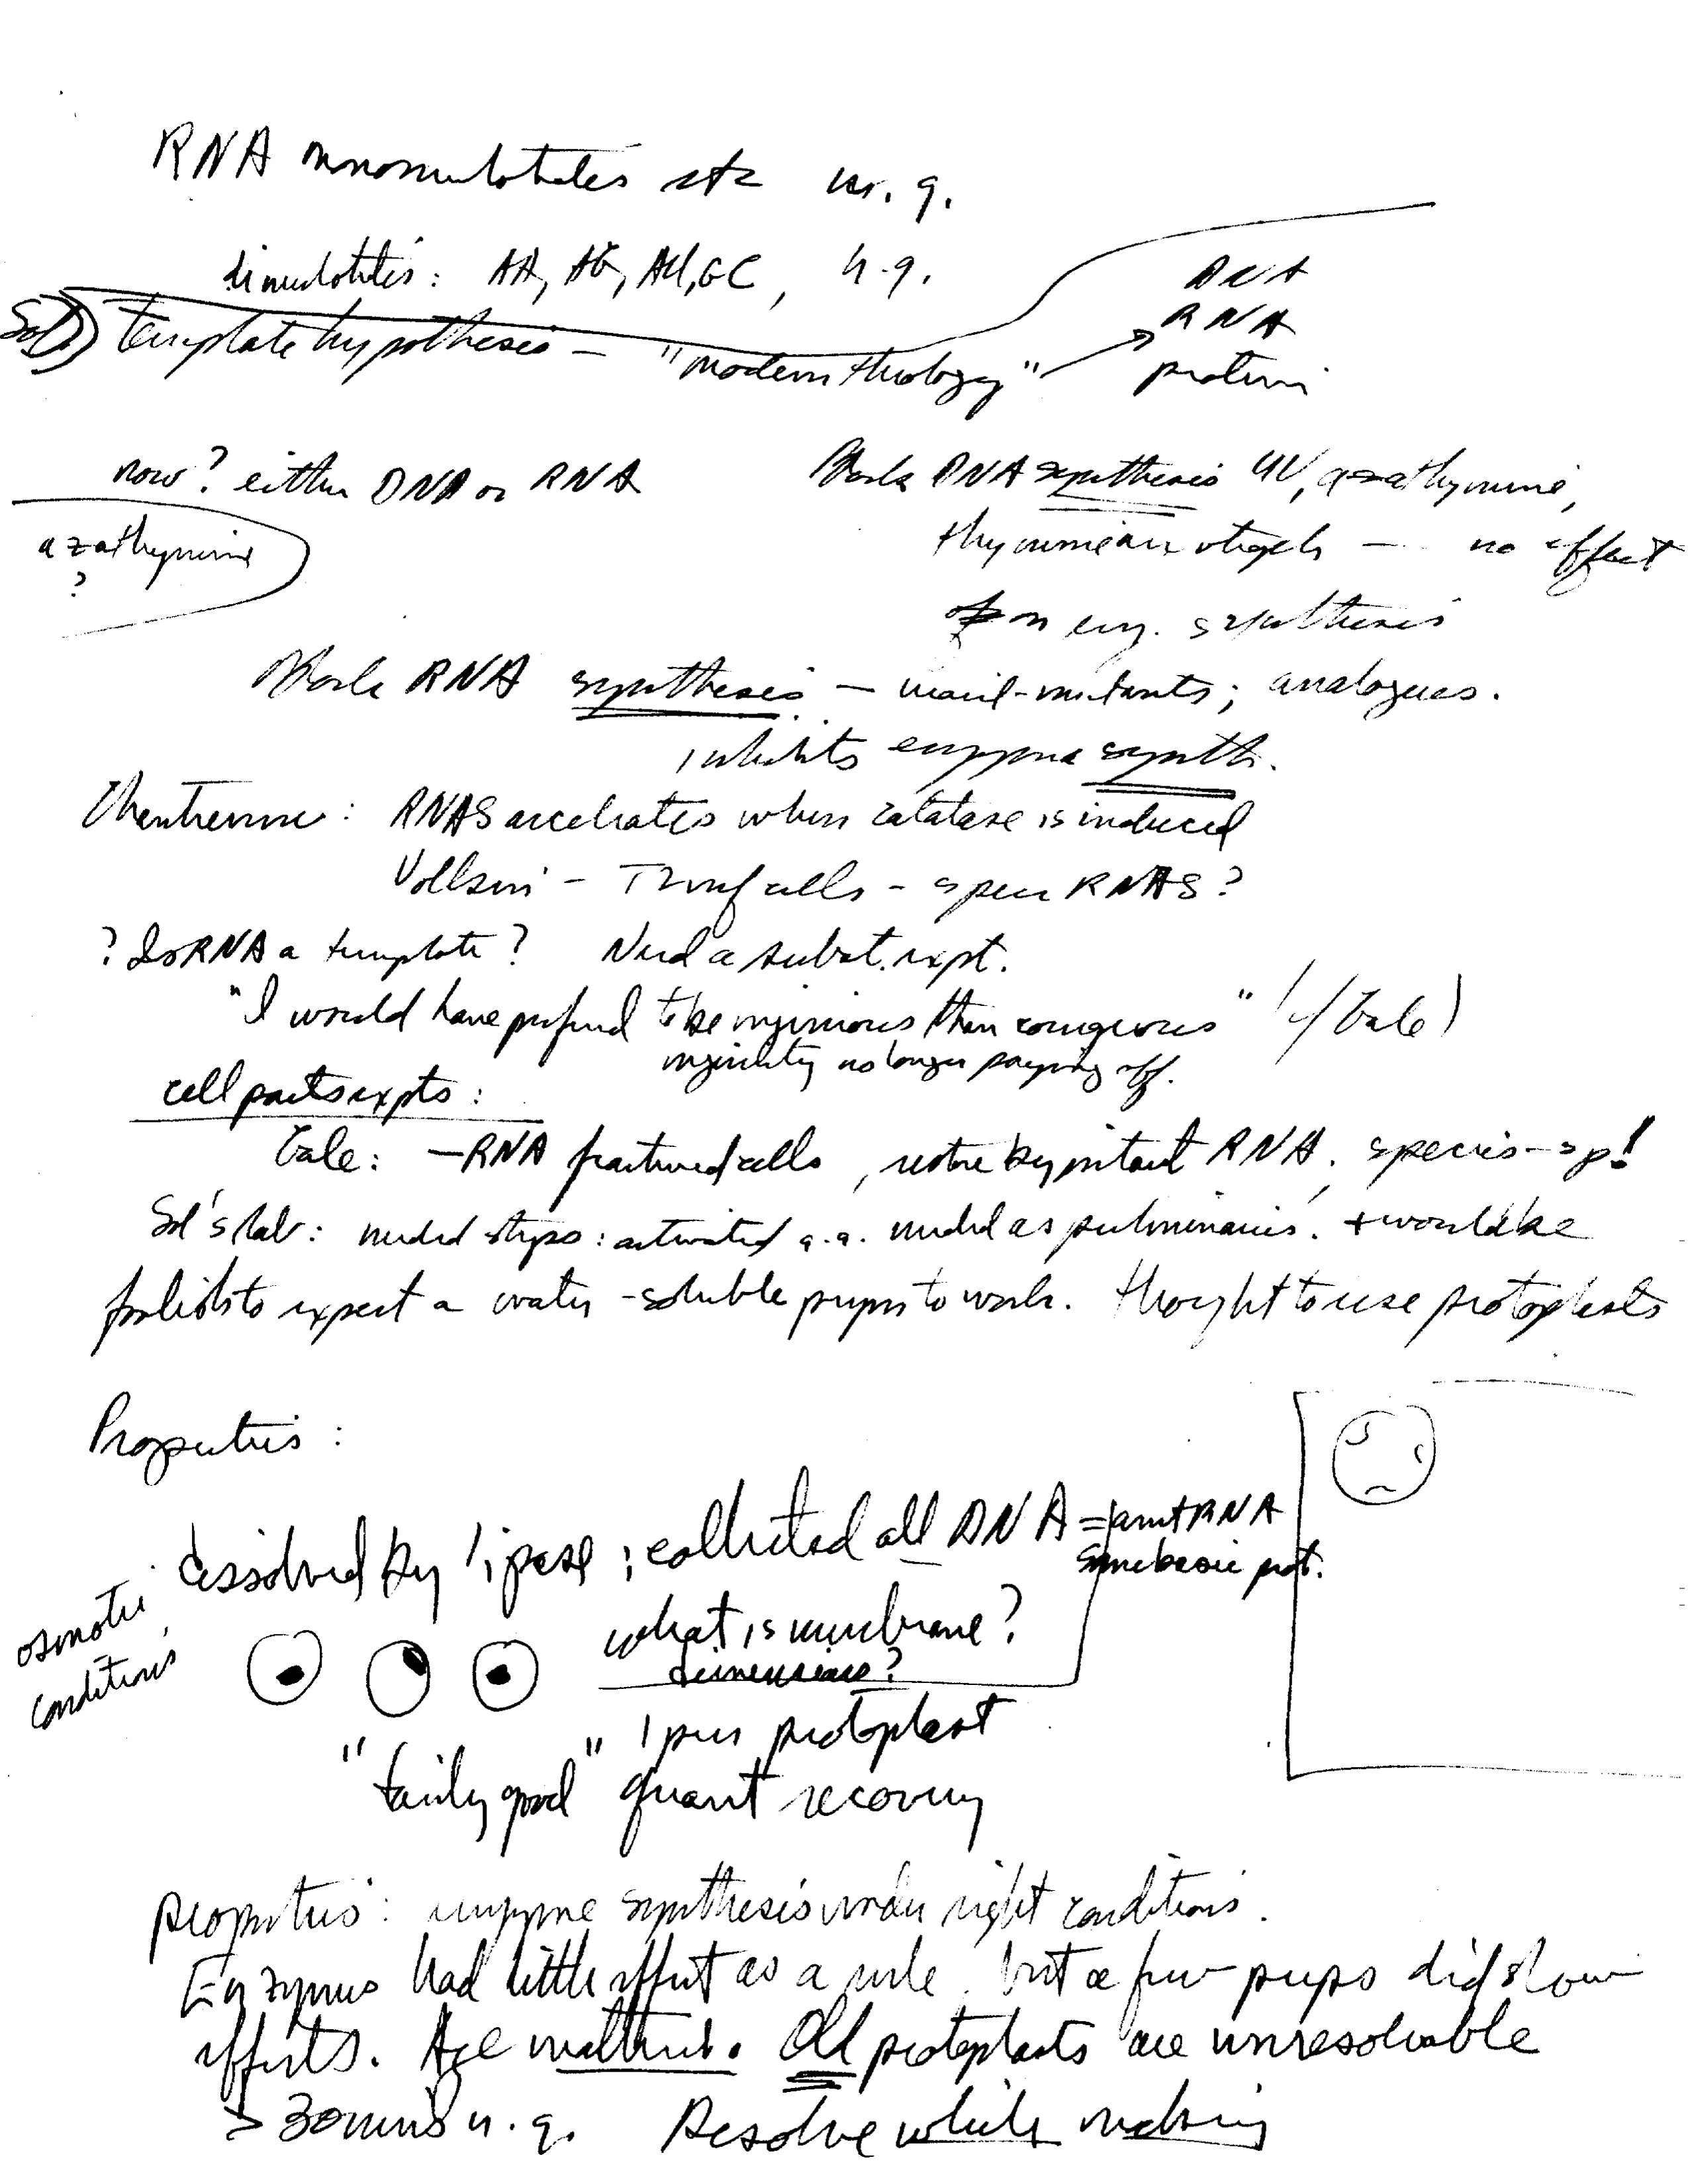 RNA mononucleotides etc n. g.
dinucleotides: AA, AG, AU, GC, n.g.
Sol)) template hypothesis - "modern theology"
DNA
RNA
protein
now? either DNA or RNA
azathymine
?
Block DNA synthesis UV, azathymine,
thymineless — no effect
on enz. synthesis
Block RNA synthesis — uracil-mutants; analogues.
inhibits enzyme synth.
Chantrenne: RNAS accelerates when catalase is induced
Volkin - T2 inf cells - spec RNAS?
? Is RNA a template? Need a subst. expt.
"I would have preferred to be ingenious than courageous" (c/ Gale)
ingenuity no longer paying off.
cell parts expts:
Gale: —RNA fractured cells, restore by intact RNA. species-sp!
Sol's lab: needed steps: activated a.a. needed as preliminaries. + would be
foolish to expect a water-soluble prepn to work. thought to use protoplasts
Properties:
dissolved by lipase; collected all DNA = amt RNA
some basic prot.
osmotic
conditions
what is membrane?
dimensions?
1 per protoplast
"fairly good" quant recovery
properties: enzyme synthesis under right conditions.
Enzymes had little effect as a rule, but a few preps did show
effects. Age matters. Old protoplasts are unresolvable
> 30 mins n.g. Resolve while making